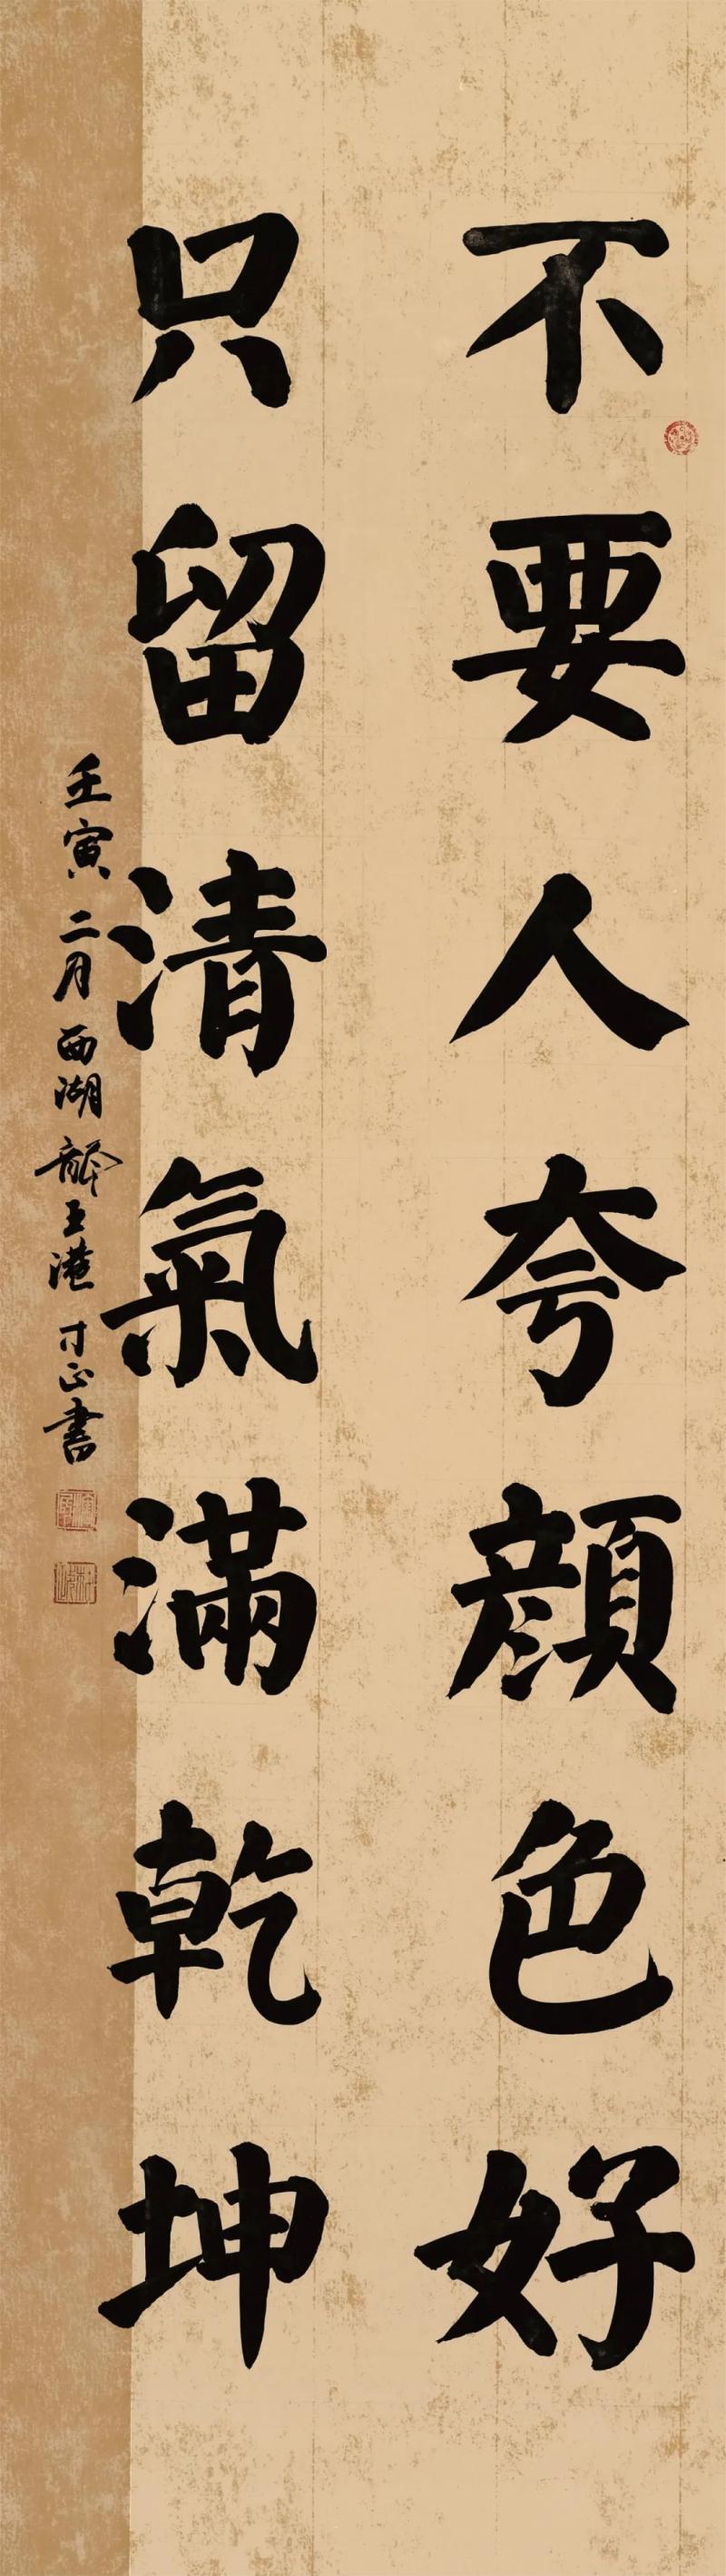 不要人夸顔色好
只留清氣滿乾坤
壬寅二月西湖龍王港寸正書